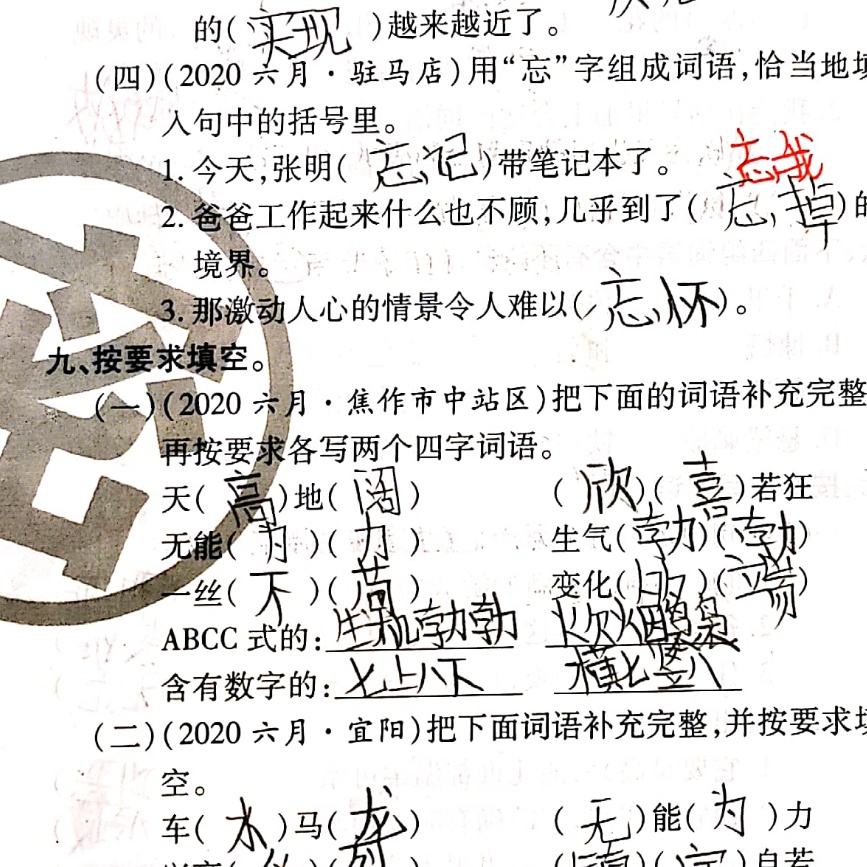 的(实现)越来越近了。
(四)(2020 六月·驻马店)用“忘”字组成词语,恰当地填
入句中的括号里。
1. 今天,张明(忘记)带笔记本了。 忘我
2. 爸爸工作起来什么也不顾,几乎到了(忘掉)的
境界。
3. 那激动人心的情景令人难以(忘怀)。
九、按要求填空。
(一)(2020 六月·焦作市中站区)把下面的词语补充完整
再按要求各写两个四字词语。
天(高)地(阔) (欣)(喜)若狂
无能(为)(力) 生气(勃)(勃)
一丝(不)(苟) 变化()(端)
ABCC 式的:生机勃勃
含有数字的:七上八下 横七竖八
(二)(2020 六月·宜阳)把下面词语补充完整,并按要求填
空。
车(水)马(龙) (无)能(为)力
自若